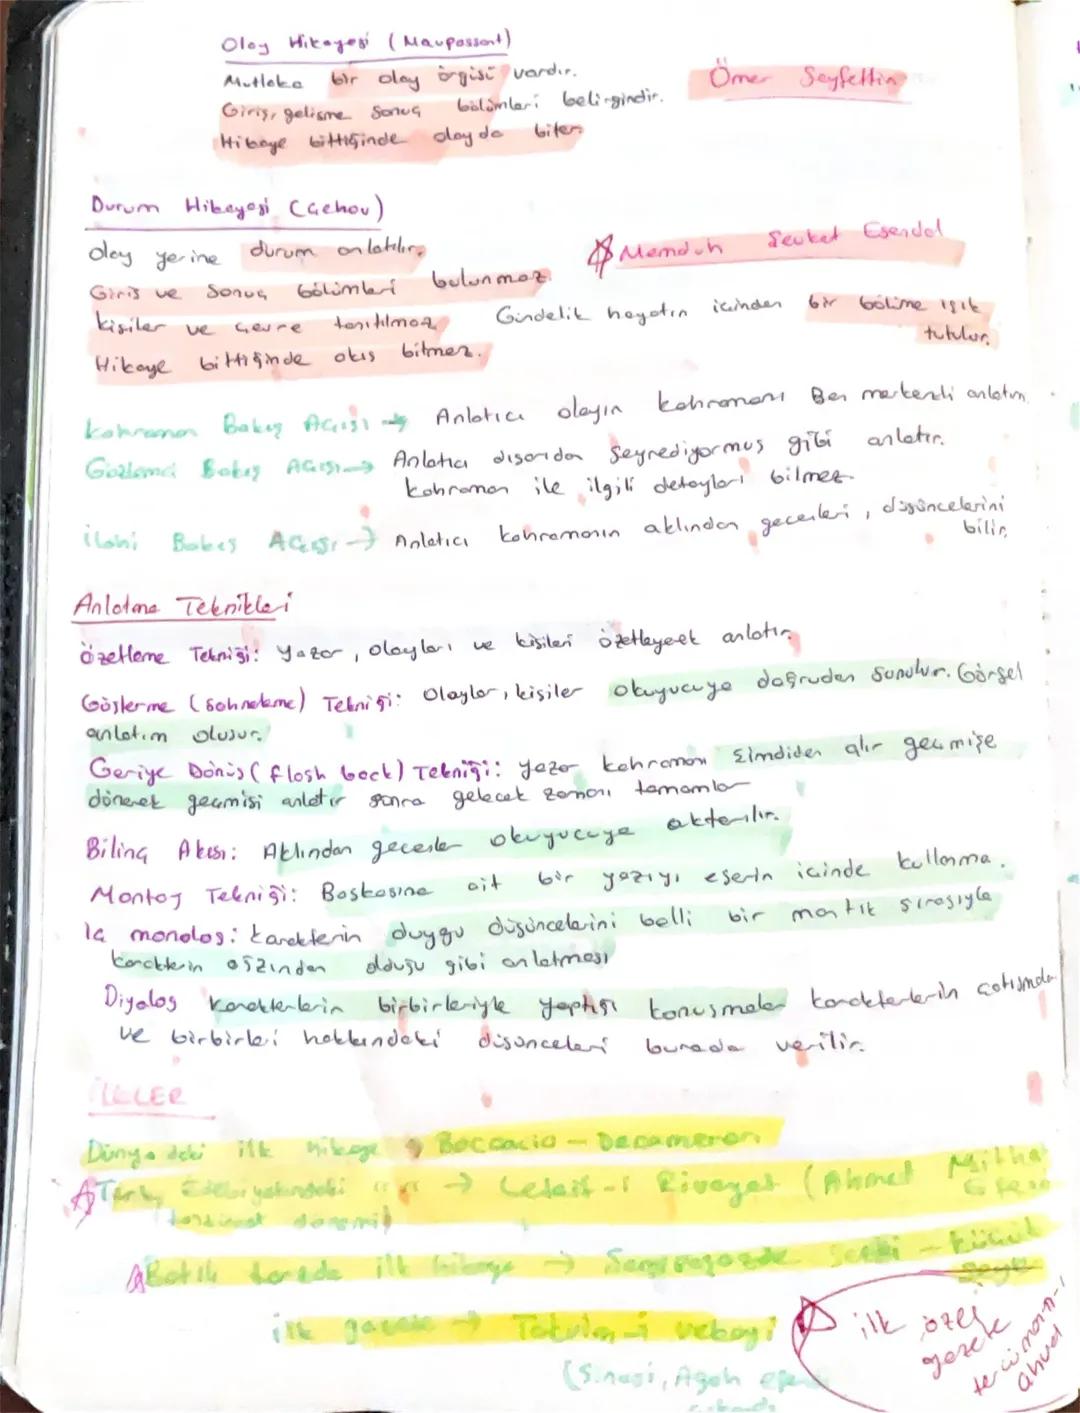 Olay Hikayesi (Maupassant)
Mutlaka bir olay örgüsü vardır.
Ömer Seyfettin
Giriş, gelişme sonuç bölümleri belirgindir.
Hikaye bittiğinde olay da biter.
Durum Hikayesi (Çehov)
olay yerine durum anlatılır.
Memduh Şevket Esendal
Giriş ve sonuç bölümleri bulunmaz.
kişiler ve çevre tanıtılmaz
Gündelik hayatın içinden bir bölüme ışık
tutulur.
Hikaye bittiğinde akış bitmez.
kahraman Bakış Açısı → Anlatıcı olayın kahramanı Ben merkezli anlatım
Gözlemci Bakış Açısı → Anlatıcı dışarıdan seyrediyormuş gibi anlatır.
kahraman ile ilgili detayları bilmez.
ilahi Bakış Açısı → Anlatıcı kahramanın aklından geçenleri, düşüncelerini
bilir.
Anlatma Teknikleri
özetleme Tekniği: Yazar, olayları ve kişileri özetleyerek anlatır.
Gösterme (sahneleme) Tekniği: Olaylar, kişiler okuyucuya doğrudan sunulur. Görsel
anlatım oluşur.
Geriye Dönüş (flash back) Tekniği: yazar kahramanı şimdiden alır geçmişe
dönerek geçmişi anlatır sonra gelecek zamanı tamamlar
Bilinç Akışı: Aklından geçenler okuyucuya aktarılır.
Montaj Tekniği: Başkasına ait bir yazıyı eserin içinde kullanma.
İç monolog: karakterin duygu düşüncelerini belli bir mantık sırasıyla
karakterin ağzından olduğu gibi anlatması
Diyalog karakterlerin birbirleriyle yaptığı konuşmalar karakterlerin çatışmaları
ve birbirleri hakkındaki düşünceleri burada verilir.
İLKLER
Dünyadaki ilk hikaye Boccacio - Decameron
Türk Edebiyatındaki → Letaif-i Rivayat (Ahmet Mithat
Efendi
tanzimat dönemi)
Batılı tarzda ilk hikaye → - küçük
şeyler
ilk gazete → Takvim-i vekayi
ilk özel
gazete
tercüman-ı
ahval
(Şinasi, Agah efendi